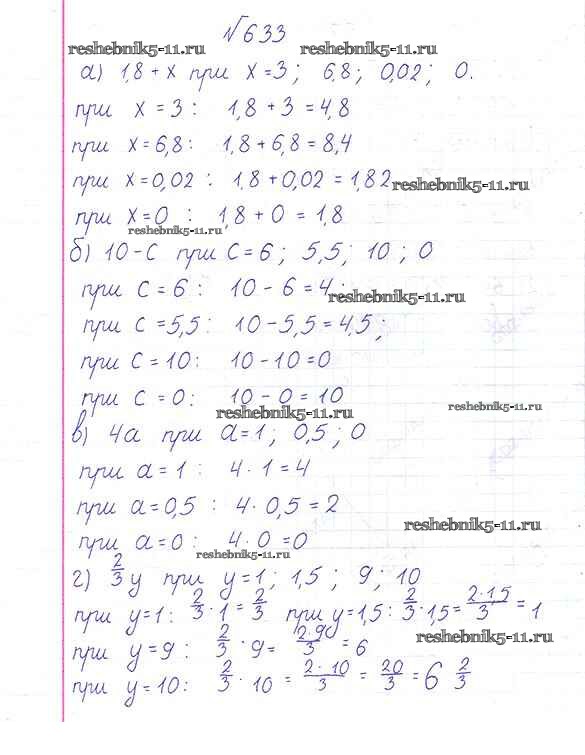 №633
reshebnik5-11.ru reshebnik5-11.ru
а) 1,8 + x при x = 3; 6,8; 0,02; 0.
при x = 3: 1,8 + 3 = 4,8
при x = 6,8: 1,8 + 6,8 = 8,4
при x = 0,02: 1,8 + 0,02 = 1,82
reshebnik5-11.ru
при x = 0: 1,8 + 0 = 1,8
reshebnik5-11.ru
б) 10 - c при c = 6; 5,5; 10; 0
при c = 6: 10 - 6 = 4;
reshebnik5-11.ru
при c = 5,5: 10 - 5,5 = 4,5;
при c = 10: 10 - 10 = 0
при c = 0: 10 - 0 = 10
reshebnik5-11.ru reshebnik5-11.ru
в) 4a при a = 1; 0,5; 0
при a = 1: 4 · 1 = 4
при a = 0,5: 4 · 0,5 = 2
reshebnik5-11.ru
при a = 0: 4 · 0 = 0
reshebnik5-11.ru
г) 2/3 y при y = 1; 1,5; 9; 10
при y = 1: 2/3 · 1 = 2/3 при y = 1,5: 2/3 · 1,5 = 2 · 1,5/3 = 1
reshebnik5-11.ru
при y = 9: 2/3 · 9 = 2 · 9/3 = 6
при y = 10: 2/3 · 10 = 2 · 10/3 = 20/3 = 6 2/3